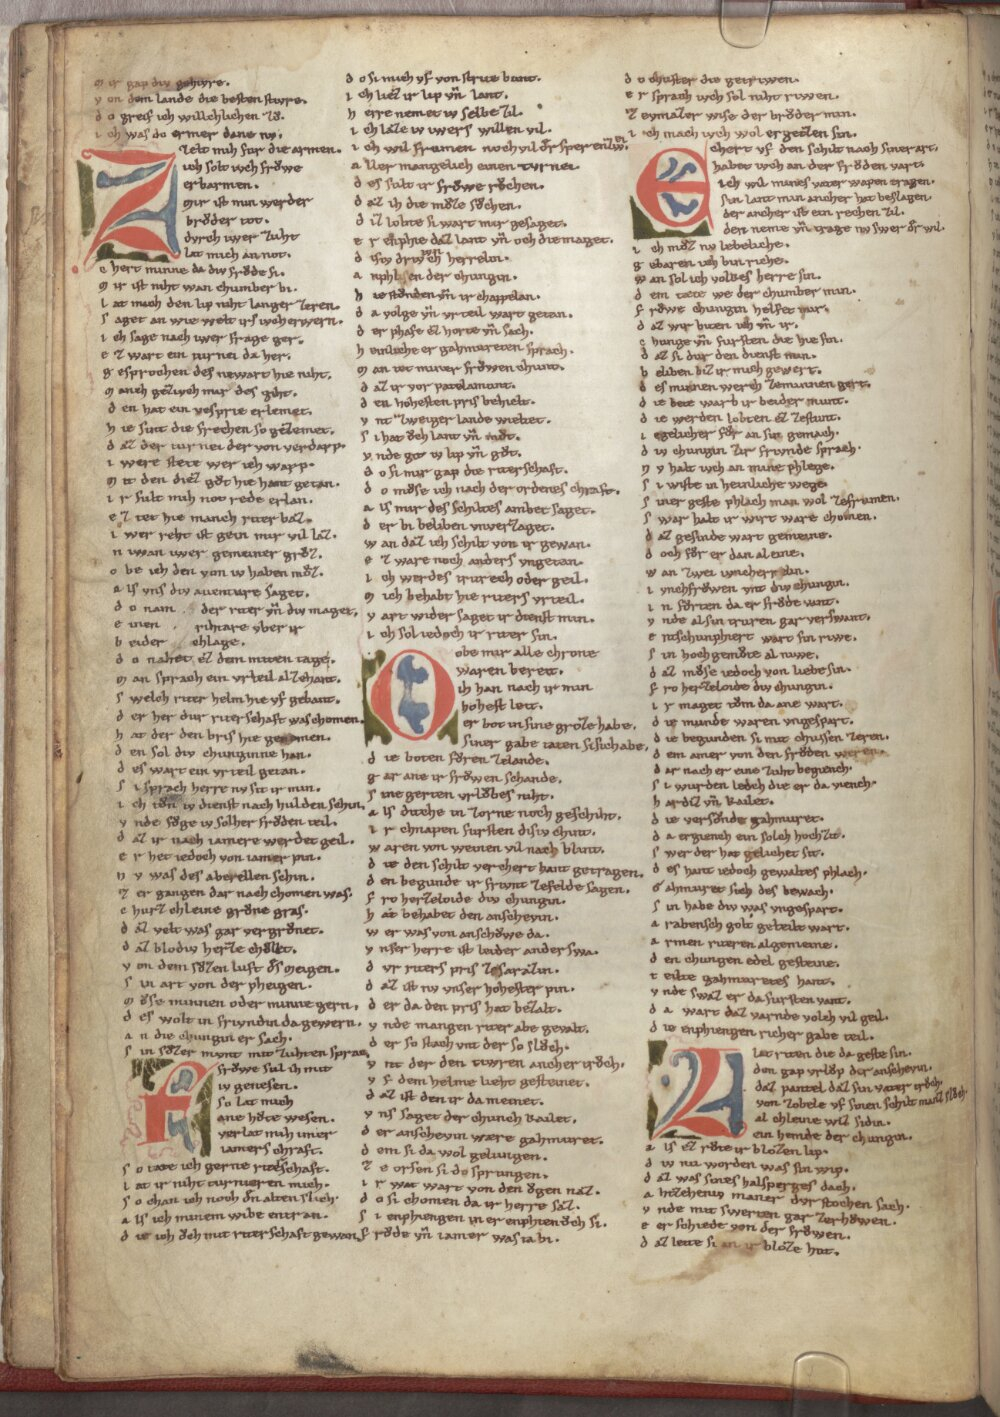 m ir gap div gehivre.
v on dem lande die besten stivre.
d o greif ich willichlichen zů.
i ch was do ermer dane nv.
Zelt mih fur die armen.
ich solt iwch frŏwe
erbarmen.
mir ist min werder
brůder tot.
dvrch iwer zuht
lat mich an not.
c hert minne da div frŏde si.
m ir ist niht wan chumber bi.
l at mich den lip niht langer zeren.
s aget an wie welt irs iwch erwern.
i ch sage nach iwer frage ger.
e z wart ein turnei da her.
g esprochen des newart hie niht.
m anch gezivch mir des giht.
d en hat ein vesprie erlemet.
h ie sint die frechen so gezemet.
d az der turnei der von verdarp.
i were stete wer ich warp.
m it den die ez gŏt hie hant getan.
i r sult mih not rede erlan.
e z tet hie manch riter baz.
i wer reht ist gein mir vil laz.
n iwan iwer gemeiner grůz.
o be ich den von iv haben můz.
a ls vns div aventure saget.
d o nam der riter vn̄ div maget.
e inen rihtare vber ir
b eider chlage.
d o nahet ez dem mitten tage.
m an sprach ein vrteil al zehant.
s welch riter helm hie vf gebant.
d er her dur riterschaft was chomen.
h at der den bris hie genomen.
d en sol div chuneginne han.
d es wart ein vrteil getan.
s i sprach herre nv sit ir min.
i ch tŏn iv dienst nach hulden schin.
v nde fŏge iv solher frŏden teil.
d az ir nach iamere werdet geil.
e r het iedoch von iamer pin.
n v was des aberellen schin.
z er gangen dar nach chomen was.
c hurz chleine grŏne gras.
d az velt was gar vergrŏnet.
d az blodiv herze chŏlet.
v on dem sŏzen luft ŏs meigen.
s in art von der pheigen.
m ŏse minnen oder minne gern.
d es wolt in friwndin da gewern.
a n die chungin er sach.
s in sŏzer mvnt mit zuhten sprac.
Frŏwe sul ih mit
iv genesen.
so lat mich
ane hŏte wesen.
verlat mih imer
iamers chraft.
s o tate ich gerne riterschaft.
l at ir niht turnieren mich.
s o chan ich noch ŏn alten slich.
a ls ich minem wibe entran.
d ie ich ŏch mit riterschaft gewan.
d o si mich vf von strite bant.
i ch liez ir lip vn̄ lant.
h erre nemet iv selbe zil.
i ch laze iv iwers willen vil.
i ch wil frumen noch vil
a ller mangelich einen tvrnei.
d es sult ir frŏwe rŏchen.
d az ih die mŏze sŏchen.
d iz lobte si wart mir gesaget.
e r enphie daz lant vn̄ ŏch die maget.
d isv driv
a nphlisen der chungin.
h ie stŏnden vn̄ ir chappelan.
d a volge vn̄ vrteil wart getan.
d er phafe ez horte vn̄ sach.
h einliche er gahmureten sprach.
m an tet miner frŏwen chunt.
d az ir vor patelamunt.
d en hohesten pris behielt.
v nt zweiger lande wielt.
s i hat ŏch lant vn̄ mŏt.
v nde git iv lip vn̄ gŏt.
d o si mir gap die riterschaft.
d o mŏse ich nach der ordenes chraft.
a ls mir des schiltes ambet saget.
d er bi beliben vnverzaget.
w an daz ich schilt von ir gewan.
e z ware noch anders vngetan.
i ch werdes trurech oder geil.
m ich behabt hie riters vrteil.
v art wider saget ir dienst min.
i ch sol iedoch ir riter sin.
Obe mir alle chrone
waren bereit.
ih han nach ir min
hohest leit.
er bot in sine groze habe.
siner gabe taten si sich abe.
d ie boten fŏren zelande.
g ar ane ir frŏwen schande.
s ine gerten vrlŏbes niht.
a ls ditche in zorne noch geschiht.
i r chnapen fursten disiv chint.
w aren von weinen vil nach blint.
d ie den schilt verchert hant getragen.
d en begunde ir friwnt zefelde sagen.
f ro herzeloide div chungin.
h at behabet den anschevin.
w er was von anschŏwe da.
v nser herre ist leider anderswa.
d vr riters pris zesarazin.
d az ist nv vnser hohester pin.
d er da den pris hat bezalt.
v nde mangen riter abe gevalt.
d er so stach vnt der so slŏch.
v nt der den tiwren ancher trŏch.
v f dem helme lieht gesteinet.
d az ist den ir da meinet.
v ns saget der chunch kailet.
d er anschevin wære gahmuret.
d em si da wol gelungen.
z e orsen si do sprungen.
i r wat wart von den ŏgen naz.
d o si chomen da ir herre saz.
s i enphiengen in er enphie ŏch si.
f rŏde vn̄ iamer was ia bi.
d o chuster die getriwen.
e r sprach iwch sol niht riwen.
z eymaler wise der brŏder min.
i ch mach iwch wol ergetzen sin.
Chert vf den schilt nach siner art.
habet iwch an der frŏden vart.
ich wil mines vater wapen tragen.
sin lant min ancher hat beslagen.
der ancher ist ein rechen zil.
den neme vn̄ trage nv swer ŏr wil.
i ch mŏz nv lebeliche.
g ebaren ich bin riche.
w an sol ich volkes herre sin.
d em tete we der chumber min.
f rŏwe chungin helfet mir.
d az wir biten ich vn̄ ir.
c hunge vn̄ fursten die hie sin.
d az si dur den dienst min.
b eliben biz ir mich gewert.
d es minnen werch zeminnen gert.
d ie bete warb ir beider munt.
d ie werden lobten ez zestunt.
i egelicher fŏr an sin gemach.
d iv chungin zir friwnde sprach.
n v halt iwch an mine phlege.
s i wiste in heinliche wege.
s iner geste phlach man wol zefrumen.
s war halt ir wirt ware chomen.
d az gesinde wart gemeine.
d och fŏr er dan al eine.
w an zwei iwncherrelin.
i vnchfrŏwen vnt div chungin.
i n fŏrten da er frŏde vant.
v nde al sin truren gar verswant.
e ntschunphiert wart sin riwe.
s in hoch gemŏte al niwe.
d az mŏse iedoch von liebe sin.
f ro herzeloide div chungin.
i r maget tŏm da ane wart.
d ie munde waren vngespart.
d ie begunden si mit chussen zeren.
d em amer von den frŏden weren.
d ar nach er eine zuht begiench.
s i wurden ledech die er da viench.
h ardiz vn̄ kailet.
d ie versŏnde gahmuret.
d a ergiench ein solch hochzit.
s wer der hat gelichet sit.
d es hant iedoch gewaltes phlach.
g ahmuret sich des bewach.
s in habe div was vngespart.
a rabensch golt geteilt wart.
a rmen riteren algemeine.
d en chungen edel gesteine.
t eilte gahmuretes hant.
v nde swaz er da fursten vant.
d a wart daz varnde volch vil geil.
d ie enphiengen richer gabe teil.
Lat riten die da geste sin.
den gap vrlŏp der anschevin.
daz pantel daz sin vater trŏch.
von zobele vf sinen schilt man slŏch.
al chleine wiz sidin.
ein hemde der chungin.
a ls ez rŏrte ir blozen lip.
d iv nu worden was sin wip.
d az was sines halsperges dach.
a hzehenv maner dvrstochen sach.
v nde mit swerten gar zerhŏwen.
e er schiede von der frŏwen.
d az leite si an ir bloze hut.